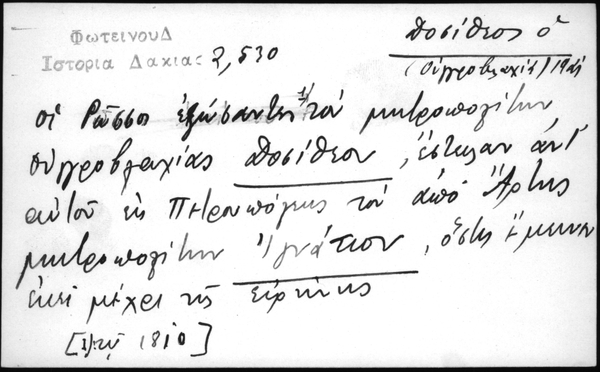 ΦωτεινουΔ
Ιστορια Δακιας 2,530
Δοσίθεος ὁ
(Οὑγγροβλαχίας)
οἱ Ρῶσσοι ἐξώσαντες τὸν μητροπολίτην
Οὑγγροβλαχίας Δοσίθεον, ἔστειλαν ἀντ'
αὐτοῦ ἐκ Πετρουπόλεως τὸν ἀπὸ Ἄρτης
μητροπολίτην Ἰγνάτιον, ὅστις ἔμεινεν
ἐκεῖ μέχρι τῆς εἰρήνης
1810]